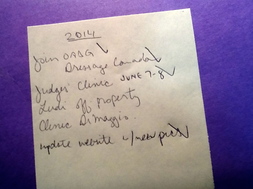 2014
Join ORDG ✓
Dressage Canada ✓
Judges' Clinic JUNE 7-8 ✓
Ludi off Property
Clinic DiMaggio.
update website w/ new pics ✓